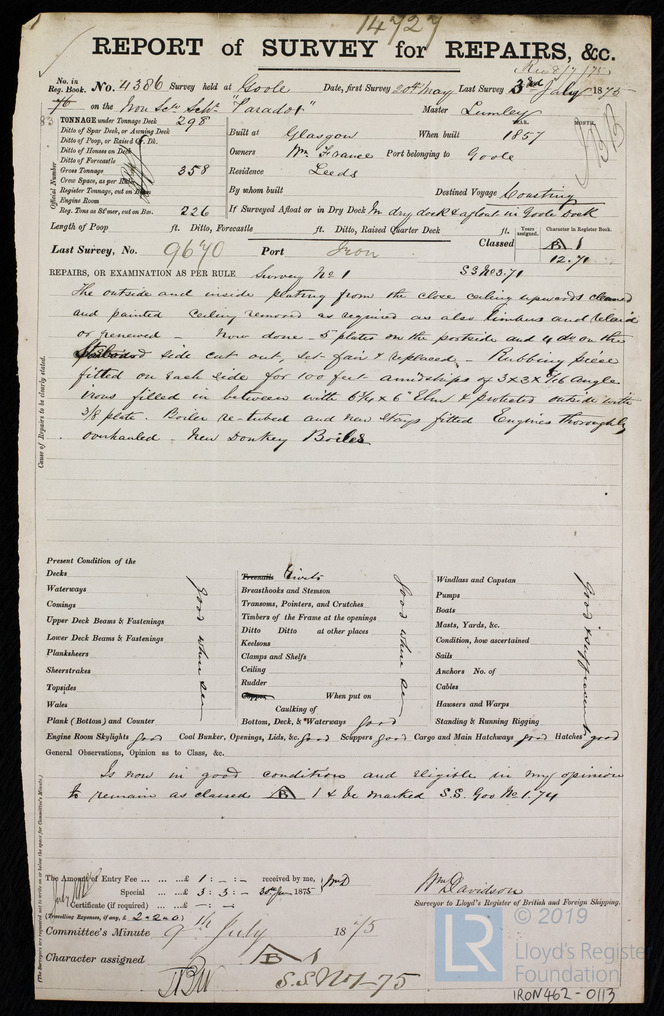 14727
REPORT of SURVEY for REPAIRS, &c.
Rec 8/7/75
No. in Reg. Book. No. 4386 Survey held at Goole Date, first Survey 20th May Last Survey 3rd July 1875
76 on the Iron Scw Schr "Parador" Master Lumley
TONNAGE under Tonnage Deck 298
YEAR. MONTH.
Ditto of Spar Deck, or Awning Deck
Built at Glasgow When built 1857
Ditto of Poop, or Raised Qr. Dk.
Ditto of Houses on Deck
Owners Wm. France Port belonging to Goole
Ditto of Forecastle
Gross Tonnage 358
Residence Leeds
Crew Space, as per Rule
Register Tonnage, cut on Beam
By whom built Destined Voyage Coasting
Engine Room
Reg. Tons as St'mer, cut on Bm. 226
If Surveyed Afloat or in Dry Dock In dry dock & afloat in Goole Dock
Official Number
Length of Poop ft. Ditto, Forecastle ft. Ditto, Raised Quarter Deck ft.
Years assigned. Character in Register Book.
Last Survey, No. 9670 Port Iron Classed B 1
12.71
REPAIRS, OR EXAMINATION AS PER RULE Survey No 1 SS No 3.71
The outside and inside plating from the close ceiling upwards cleaned
and painted Ceiling removed as required as also limbers and relaid
or renewed - Now done - 5 plates on the portside and 4 do on the
Starboard side cut out, set fair & replaced - Rubbing piece
fitted on each side for 100 feet amidships of 3 x 3 x 7/16 angle
irons filled in between with 6½ x 6" Elm & protected outside with
3/8 plate. Boiler re-tubed and new stays fitted Engines thoroughly
overhauled - New Donkey Boiler
Cause of Repairs to be clearly stated.
Present Condition of the
Decks
Waterways
Comings
Upper Deck Beams & Fastenings
Lower Deck Beams & Fastenings
Planksheers
Sheerstrakes
Topsides
Wales
Plank (Bottom) and Counter
Good where seen
Treenails Rivets
Breasthooks and Stemson
Transoms, Pointers, and Crutches
Timbers of the Frame at the openings
Ditto Ditto at other places
Keelsons
Clamps and Shelfs
Ceiling
Rudder
Copper When put on
Caulking of
Bottom, Deck, & Waterways good
Good where seen
Windlass and Capstan
Pumps
Boats
Masts, Yards, &c.
Condition, how ascertained
Sails
Anchors No. of
Cables
Hawsers and Warps
Standing & Running Rigging
Good & sufficient
Engine Room Skylights good Coal Bunker, Openings, Lids, &c. good Scuppers good Cargo and Main Hatchways good Hatches good
General Observations, Opinion as to Class, &c.
Is now in good condition and eligible in my opinion
to remain as classed B 1 & be marked S.S. Goo No 1.74
(The Surveyors are requested not to write on or below the space for Committee's Minute.)
The Amount of Entry Fee ... ... ...£ 1 : - : - received by me, WmD
Special ... ...£ 3 : 3 : - 1875
Certificate (if required) ... ...£ - : - :
(Travelling Expenses, if any, £ 2-2-0)
Wm Davidson
Surveyor to Lloyd's Register of British and Foreign Shipping.
Committee's Minute 9th July 1875
Character assigned B 1
S.S. No 1-75
© 2019
LR
Lloyd's Register
Foundation
IRON462-0113